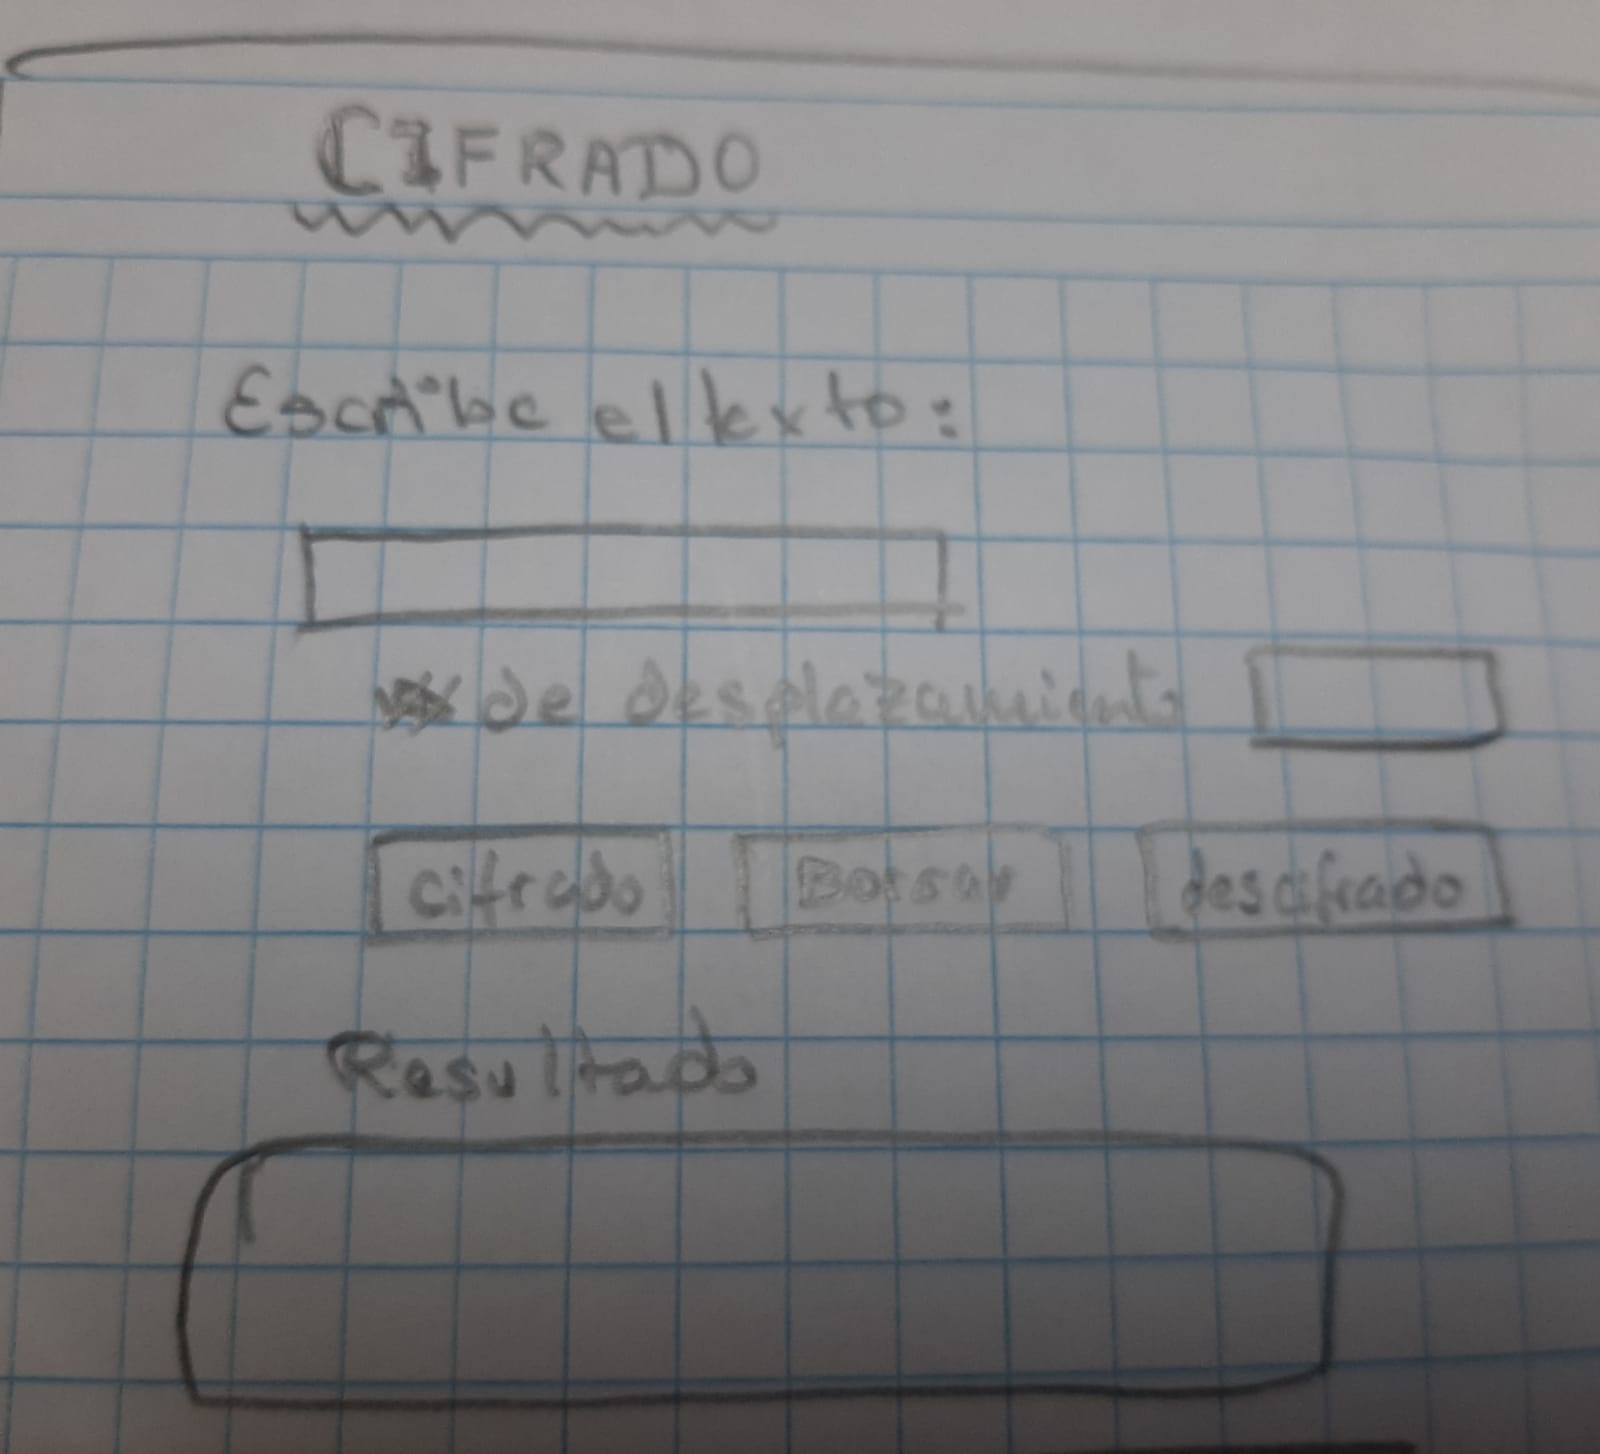 CIFRADO
Escribe el texto:
de desplazamiento
cifrado Borrar descifrado
Resultado